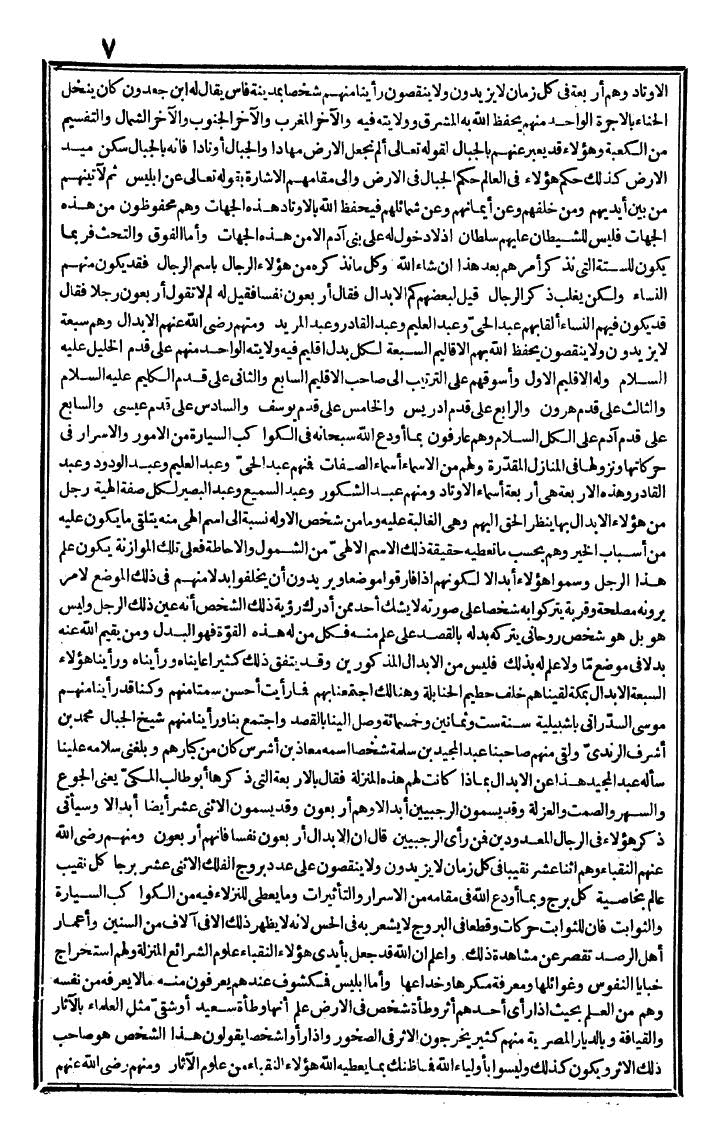 ٧
الاوتاد وهم أربعة فى كل زمان لا يزيدون ولا ينقصون رأينا منهم شخصا بمدينة فاس يقال له ابن جعدون كان ينخل
الحناء بالاجرة الواحد منهم يحفظ الله به المشرق وولايته فيه والآخر المغرب والآخر الجنوب والآخر الشمال والتقسيم
من الكعبة وهؤلاء قد يعبر عنهم بالجبال لقوله تعالى ألم نجعل الارض مهادا والجبال أوتادا فانه بالجبال سكن ميد
الارض كذلك حكم هؤلاء فى العالم حكم الجبال فى الارض والى مقامهم الاشارة بقوله تعالى عن ابليس ثم لآتينهم
من بين أيديهم ومن خلفهم وعن أيمانهم وعن شمائلهم فيحفظ الله بالاوتاد هذه الجهات وهم محفوظون من هذه
الجهات فليس للشيطان عليهم سلطان اذ لا دخول له على بنى آدم الا من هذه الجهات وأما الفوق والتحت فربما
يكون للستة التى نذكر أمرهم بعد هذا ان شاء الله وكل ما نذكره من هؤلاء الرجال باسم الرجال فقد يكون منهم
النساء ولكن يغلب ذكر الرجال قيل لبعضهم كم الابدال فقال أربعون نفسا فقيل له لم لا تقول أربعون رجلا فقال
قد يكون فيهم النساء ألقابهم عبد الحىّ وعبد العليم وعبد القادر وعبد المريد ومنهم رضى الله عنهم الابدال وهم سبعة
لا يزيدون ولا ينقصون يحفظ الله بهم الاقاليم السبعة لكل بدل اقليم فيه ولايته الواحد منهم على قدم الخليل عليه
السلام وله الاقليم الاول وأسوقهم على الترتيب الى صاحب الاقليم السابع والثانى على قدم الكليم عليه السلام
والثالث على قدم هرون والرابع على قدم ادريس والخامس على قدم يوسف والسادس على قدم عيسى والسابع
على قدم آدم على الكل السلام وهم عارفون بما أودع الله سبحانه فى الكواكب السيارة من الامور والاسرار فى
حركاتها ونزولها فى المنازل المقدّرة ولهم من الاسماء أسماء الصفات فمنهم عبد الحىّ وعبد العليم وعبد الودود وعبد
القادر وهذه الاربعة هى أربعة أسماء الاوتاد ومنهم عبد الشكور وعبد السميع وعبد البصير لكل صفة الهية رجل
من هؤلاء الابدال بها ينظر الحق اليهم وهى الغالبة عليه وما من شخص الا وله نسبة الى اسم الهى منه يتلقى ما يكون عليه
من أسباب الخير وهم بحسب ما تعطيه حقيقة ذلك الاسم الالهىّ من الشمول والاحاطة فعلى تلك الموازنة يكون علم
هذا الرجل وسموا هؤلاء أبدالا لكونهم اذا فارقوا موضعا ويريدون أن يخلفوا بدلا منهم فى ذلك الموضع لامر
يرونه مصلحة وقربة يتركوا به شخصا على صورته لا يشك أحد ممن أدرك رؤية ذلك الشخص أنه عين ذلك الرجل وليس
هو بل هو شخص روحانى يتركه بدله بالقصد على علم منه فكل من له هذه القوّة فهو البدل ومن يقيم الله عنه
بدلا فى موضع مّا ولا علم له بذلك فليس من الابدال المذكورين وقد يتفق ذلك كثيرا عايناه ورأيناه ورأينا هؤلاء
السبعة الابدال بمكة لقيناهم خلف حطيم الحنابلة وهنالك اجتمعنا بهم فما رأيت أحسن سمتا منهم وكنا قد رأينا منهم
موسى السدّرانى باشبيلية سنة ست وثمانين وخمسمائة وصل الينا بالقصد واجتمع بنا ورأينا منهم شيخ الجبال محمد بن
أشرف الرندىّ ولقى منهم صاحبنا عبد المجيد بن سلمة شخصا اسمه معاذ بن أشرس كان من كبارهم وبلغنى سلامه علينا
سأله عبد المجيد هذا عن الابدال بماذا كانت لهم هذه المنزلة فقال بالاربعة التى ذكرها أبو طالب المكىّ يعنى الجوع
والسهر والصمت والعزلة وقد يسمون الرجبيين أبدالا وهم أربعون وقد يسمون الاثنى عشر أيضا أبدالا وسيأتى
ذكر هؤلاء فى الرجال المعدودين فمن رأى الرجبيين قال ان الابدال أربعون نفسا فانهم أربعون ومنهم رضى الله
عنهم النقباء وهم اثنا عشر نقيبا فى كل زمان لا يزيدون ولا ينقصون على عدد بروج الفلك الاثنى عشر برجا كل نقيب
عالم بخاصية كل برج وبما أودع الله فى مقامه من الاسرار والتأثيرات وما يعطى للنزلاء فيه من الكواكب السيارة
والثوابت فان للثوابت حركات وقطعا فى البروج لا يشعر به فى الحس لانه لا يظهر ذلك الا فى آلاف من السنين وأعمار
أهل الرصد تقصر عن مشاهدة ذلك واعلم ان الله قد جعل بأيدى هؤلاء النقباء علوم الشرائع المنزلة ولهم استخراج
خبايا النفوس وغوائلها ومعرفة مكرها وخداعها وأما ابليس فمكشوف عندهم يعرفون منه ما لا يعرفه من نفسه
وهم من العلم بحيث اذا رأى أحدهم أثر وطأة شخص فى الارض علم أنها وطأة سعيد أو شقىّ مثل العلماء بالآثار
والقيافة وبالديار المصرية منهم كثير يخرجون الاثر فى الصخور واذا رأوا شخصا يقولون هذا الشخص هو صاحب
ذلك الاثر ويكون كذلك وليسوا بأولياء الله فما ظنك بما يعطيه الله هؤلاء النقباء من علوم الآثار ومنهم رضى الله عنهم